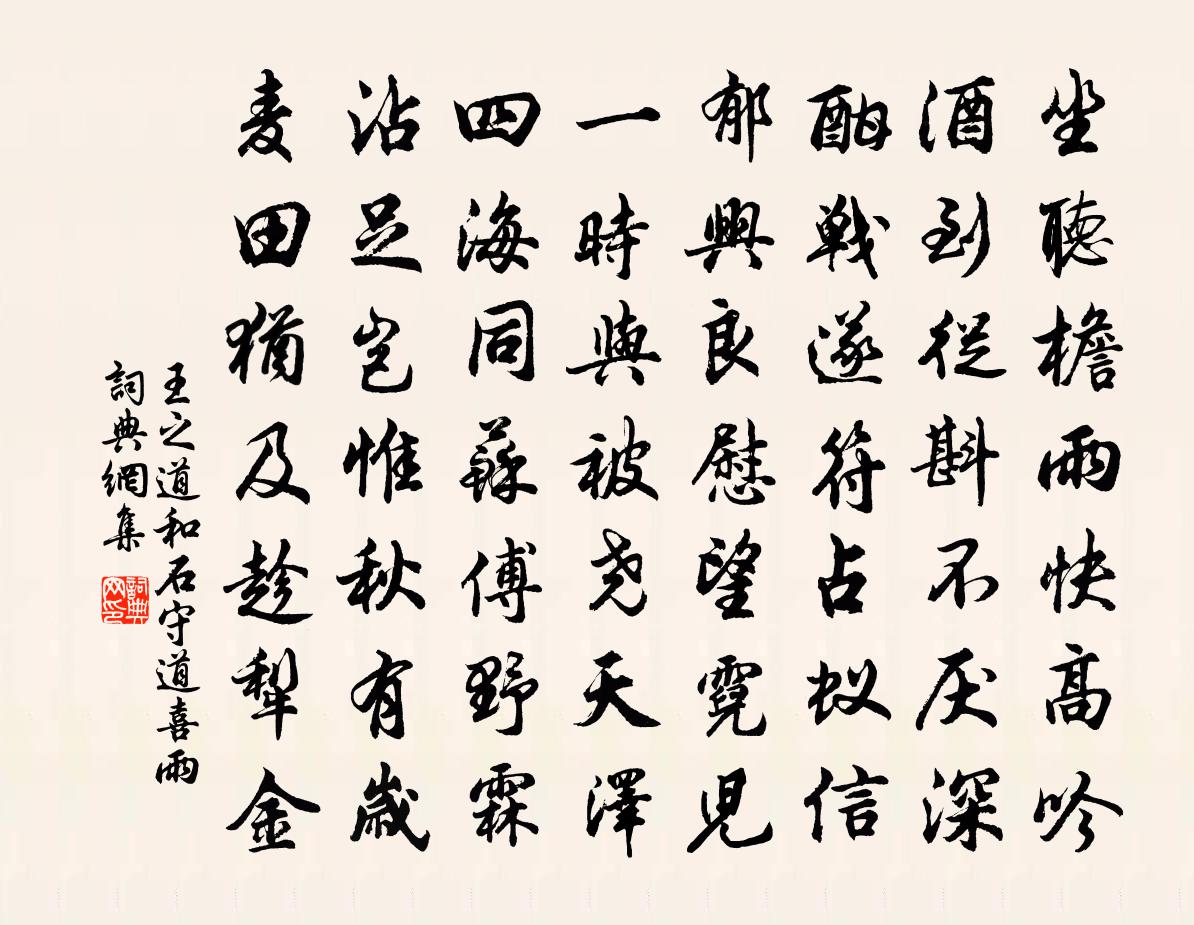 坐聽檐雨快高吟
酒到從斟不厌深
酣戦遂符占蚁信
郁興良慰望霓児
一時與被尧天澤
四海同蘇傅野霖
沾足岂惟秋有歳
麦田猶及趁犁金
王之道和石守道喜雨
詞典網集
詞典网印